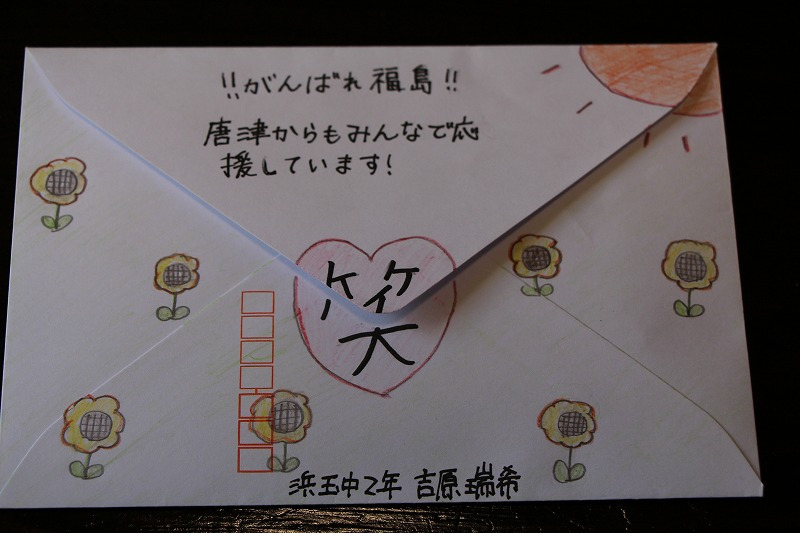 !!がんばれ福島!!
唐津からもみんなで応
援しています!
笑
浜玉中2年 吉原瑞希